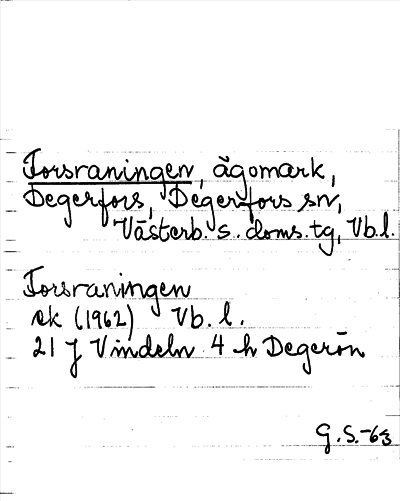 Forsraningen, ägomark,
Degerfors, Degerfors sn,
Västerb. s. doms. tg, Vb.l.
Forsraningen
ek (1962) Vb. l.
21 J Vindeln 4 h Degerön
G.S.-63